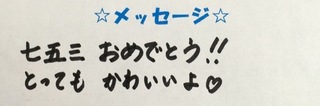 ☆メッセージ☆
七五三 おめでとう!!
とっても かわいいよ♡